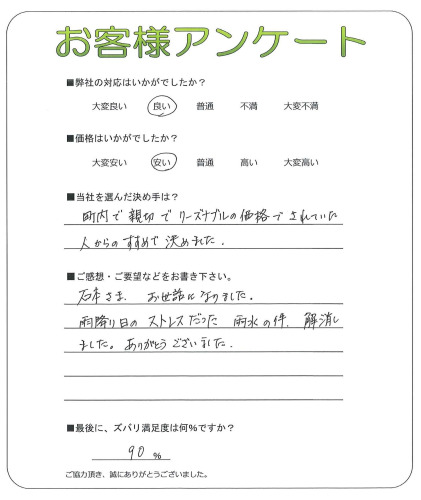 お客様アンケート
■弊社の対応はいかがでしたか？
大変良い 良い 普通 不満 大変不満
■価格はいかがでしたか？
大変安い 安い 普通 高い 大変高い
■当社を選んだ決め手は？
町内で親切でリーズナブルの価格でされていた
人からのすすめで決めました.
■ご感想・ご要望などをお書き下さい。
石本さま. お世話になりました。
雨降り日のストレスだった 雨水の件. 解消し
ました。ありがとうございました.
■最後に、ズバリ満足度は何％ですか？
90 %
ご協力頂き、誠にありがとうございました。